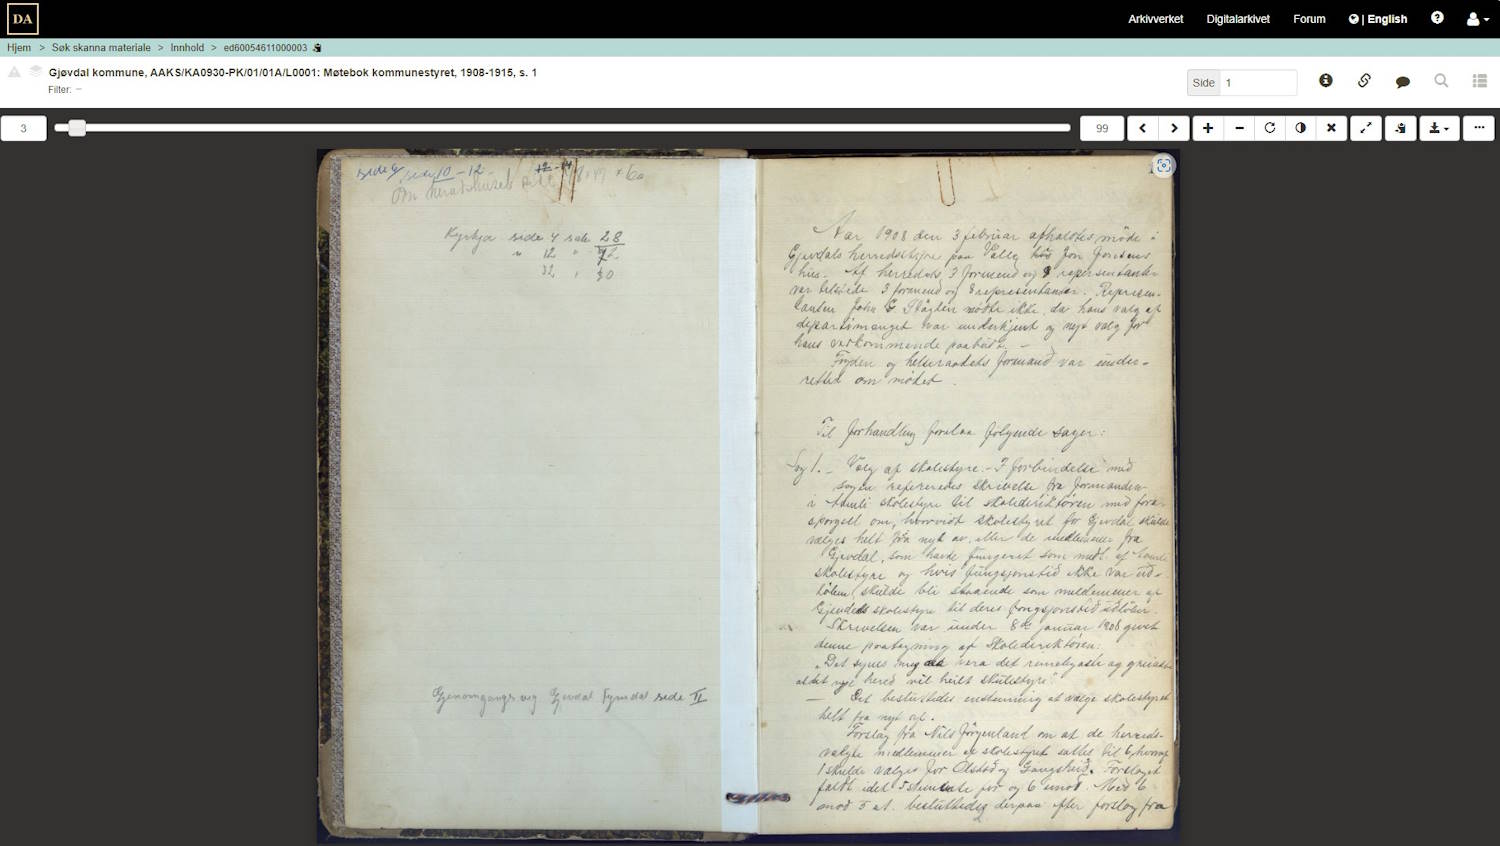 DA
Arkivverket Digitalarkivet Forum | English
Hjem > Søk skanna materiale > Innhold > ed60054611000003
Gjøvdal kommune, AAKS/KA0930-PK/01/01A/L0001: Møtebok kommunestyret, 1908-1915, s. 1
Filter: –
Side 1
3
99
side 9 side 10 - 12 12 - 14
Om
Kyrkja side 4 side 28
" 12 "
32 " 30
Gjenomgangs veg Gjevdal Fyresdal side II
Aar 1908 den 3 februar afholdtes møde i
Gjevdals herredsstyre paa Valle hos Jon Jonsens
hus. Af herredets 3 formend og 9 repræsentanter
var tilstede 3 formend og 8 repræsentanter. Represen-
tanten John G mødte ikke, da hans valg af
departementet var underkjent og nyt valg for
hans vedkommende paabudt. –
Fogden og helseraadets formand var under-
rettet om mødet.
Til forhandling forelaa følgende sager:
Sag 1. – Valg af skolestyre. – I forbindelse med
sagen refereredes skrivelse fra formanden
i Aamli skolestyre til skoledirektøren med fore-
spørgsel om, hvorvidt skolestyret for Gjevdal skulde
vælges helt fra nyt av, eller de medlemmer fra
Gjevdal, som havde fungeret som medl. af Aamli
skolestyre og hvis fungsjonstid ikke var ud-
løben, skulde bli staaende som medlemmer af
Gjevdals skolestyre til deres fungsjonstid udløber.
Skrivelsen var under 8de januar 1908 givet
denne paategning af Skoledirektøren:
"Det synes meg aa vera det rimelegaste og greiaste
at det nye hered vel heilt skulestyre".
– Det besluttedes enstemmig at vælge skolestyret
helt fra nyt af.
Forslag fra Nils Jørgenland om at de herreds-
valgte medlemmer af skolestyret sættes til 6, hvoraf
1 skulde vælges for Olstad og Forslaget
faldt idet 5 stemte for og 6 imod. Med 6
mod 5 st. besluttedes derpaa efter forslag fra